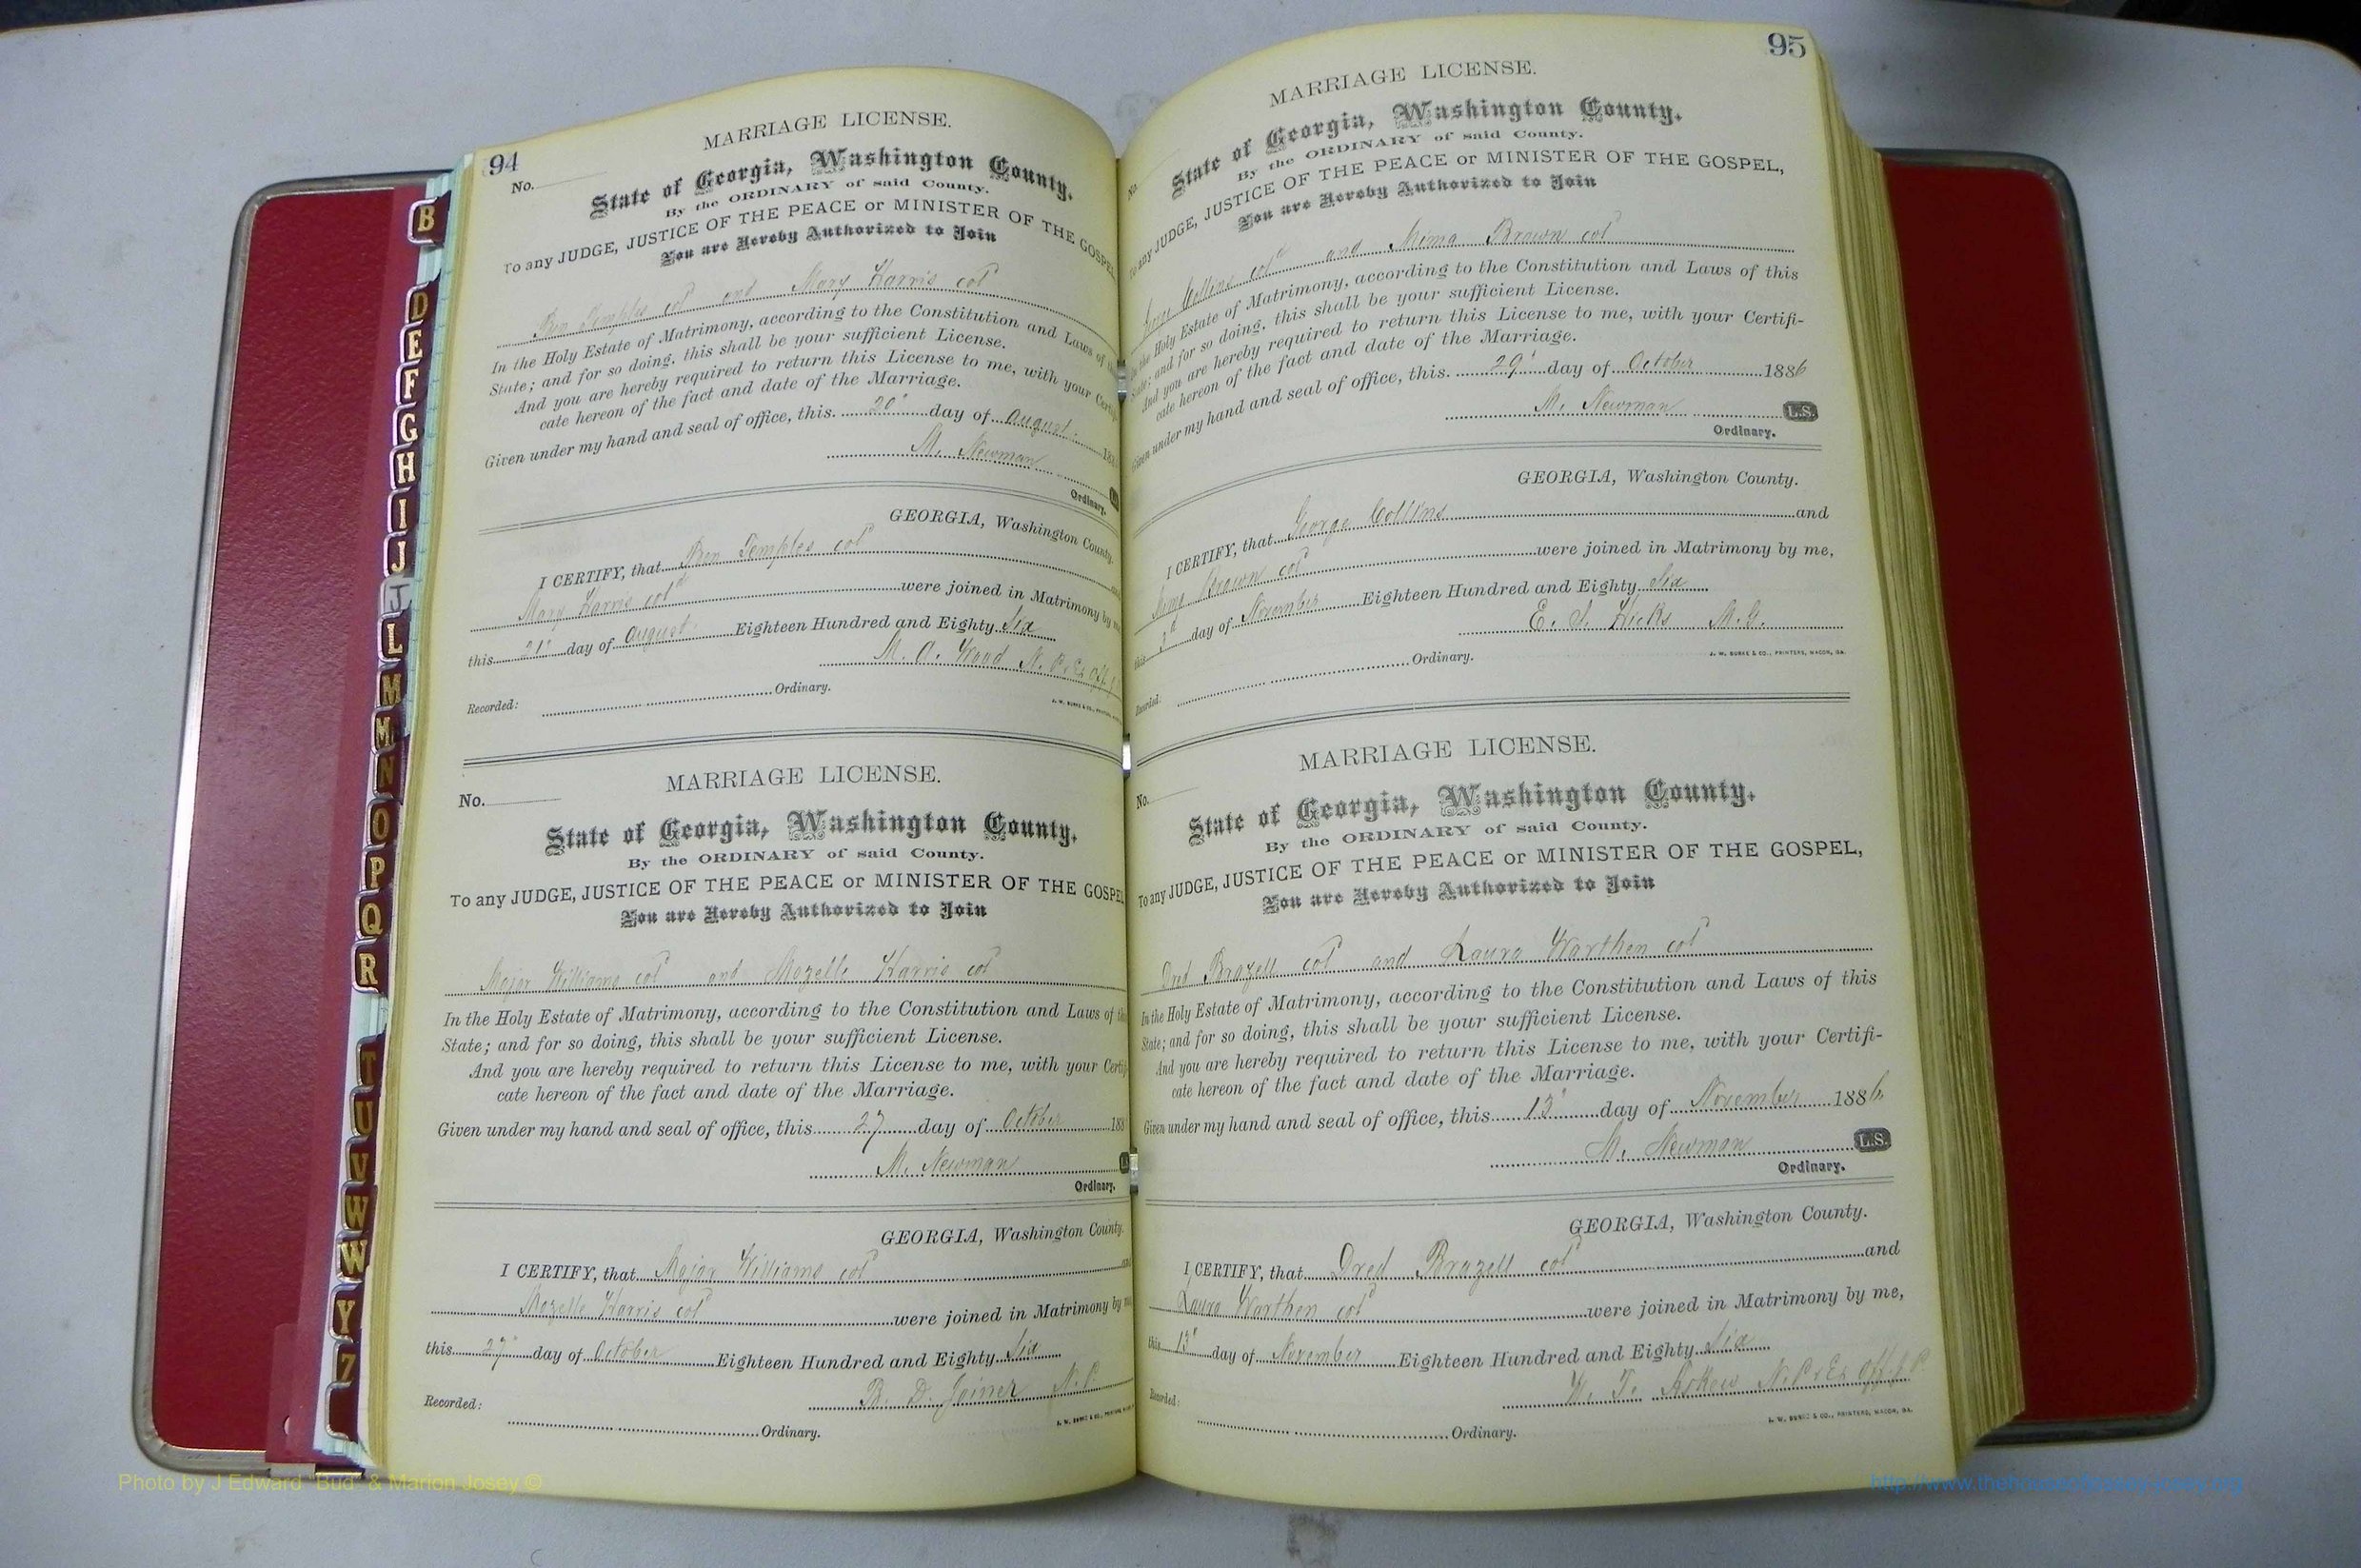 94
MARRIAGE LICENSE.
No.
State of Georgia, Washington County.
By the ORDINARY of said County.
To any JUDGE, JUSTICE OF THE PEACE or MINISTER OF THE GOSPEL
You are Hereby Authorized to Join
Ben Temples col and Mary Harris col
In the Holy Estate of Matrimony, according to the Constitution and Laws of
State; and for so doing, this shall be your sufficient License.
And you are hereby required to return this License to me, with your Certifi
cate hereon of the fact and date of the Marriage.
Given under my hand and seal of office, this 20" day of August 188
M. Newman
Ordinary.
GEORGIA, Washington County.
I CERTIFY, that Ben Temples col
Mary Harris col were joined in Matrimony by
this 21" day of August Eighteen Hundred and Eighty Six
M. A. Wood N. P.
Recorded: Ordinary.
MARRIAGE LICENSE.
No.
State of Georgia, Washington County.
By the ORDINARY of said County.
To any JUDGE, JUSTICE OF THE PEACE or MINISTER OF THE GOSPEL
You are Hereby Authorized to Join
Major Williams col and Mozelle Harris col
In the Holy Estate of Matrimony, according to the Constitution and Laws of
State; and for so doing, this shall be your sufficient License.
And you are hereby required to return this License to me, with your Certifi
cate hereon of the fact and date of the Marriage.
Given under my hand and seal of office, this 27 day of October 188
M. Newman
Ordinary.
GEORGIA, Washington County.
I CERTIFY, that Major Williams col
Mozelle Harris col were joined in Matrimony by
this 27" day of October Eighteen Hundred and Eighty Six
B. D. Joiner N. P.
Recorded: Ordinary.
95
MARRIAGE LICENSE.
No.
State of Georgia, Washington County.
By the ORDINARY of said County.
To any JUDGE, JUSTICE OF THE PEACE or MINISTER OF THE GOSPEL,
You are Hereby Authorized to Join
Collins col and Mima Brown col
In the Holy Estate of Matrimony, according to the Constitution and Laws of this
State; and for so doing, this shall be your sufficient License.
And you are hereby required to return this License to me, with your Certifi-
cate hereon of the fact and date of the Marriage.
Given under my hand and seal of office, this 29" day of October 1886
M. Newman L.S.
Ordinary.
GEORGIA, Washington County.
I CERTIFY, that George Collins and
Mima Brown col were joined in Matrimony by me,
this 3d day of November Eighteen Hundred and Eighty Six
E. S. Hicks M.G.
Ordinary. J. W. BURKE & CO., PRINTERS, MACON, GA.
Recorded:
MARRIAGE LICENSE.
No.
State of Georgia, Washington County.
By the ORDINARY of said County.
To any JUDGE, JUSTICE OF THE PEACE or MINISTER OF THE GOSPEL,
You are Hereby Authorized to Join
Dred Brazell col and Laura Warthen col
In the Holy Estate of Matrimony, according to the Constitution and Laws of this
State; and for so doing, this shall be your sufficient License.
And you are hereby required to return this License to me, with your Certifi-
cate hereon of the fact and date of the Marriage.
Given under my hand and seal of office, this 13" day of November 1886
M. Newman L.S.
Ordinary.
GEORGIA, Washington County.
I CERTIFY, that Dred Brazell col and
Laura Warthen col were joined in Matrimony by me,
this 13" day of November Eighteen Hundred and Eighty Six
W. T. Askew N.P & Ex Off. J P
Recorded: J. W. BURKE & CO., PRINTERS, MACON, GA.
Ordinary.
B
D
E
F
G
H
I
J
J
L
M
M
N
O
P
Q
R
T
U
V
W
W
Y
Z
Photo by J Edward "Bud" & Marion Josey ©